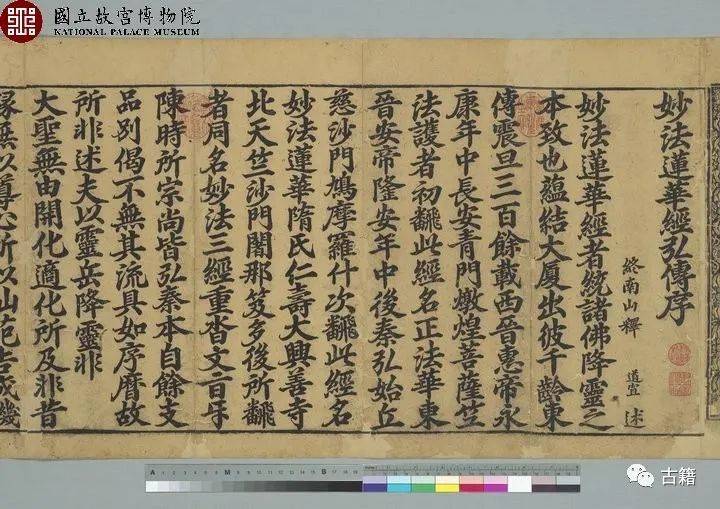 國立故宮博物院
NATIONAL PALACE MUSEUM
妙法蓮華經弘傳序
終南山釋 道宣 述
妙法蓮華經者統諸佛降靈之
本致也蘊結大夏出彼千齡東
傳震旦三百餘載西晉惠帝永
康年中長安青門燉煌菩薩竺
法護者初飜此經名正法華東
晉安帝隆安年中後秦弘始丘
慈沙門鳩摩羅什次飜此經名
妙法蓮華隋氏仁壽大興善寺
北天竺沙門闍那笈多後所飜
者同名妙法三經重沓文旨互
陳時所宗尚皆弘秦本自餘支
品別偈不無其流具如序曆故
所非述夫以靈岳降靈非
大聖無由開化適化所及非昔
緣無以導心所以仙苑告成機
古籍